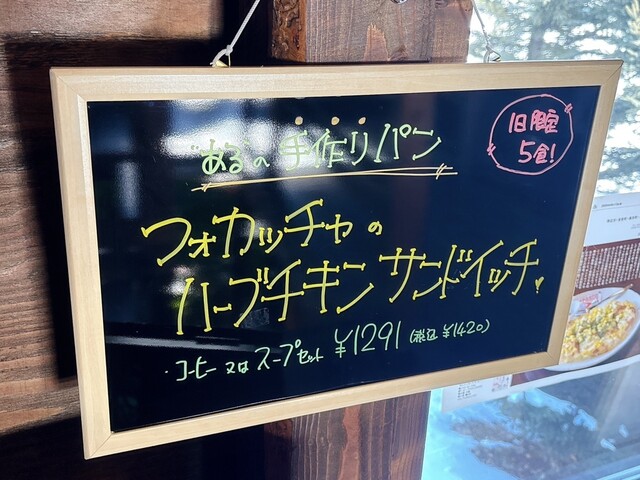 "ある"の手作りパン
1日限定
5食!
フォカッチャの
ハーブチキンサンドイッチ
・コーヒー又はスープセット ¥1291 (税込 ¥1420)